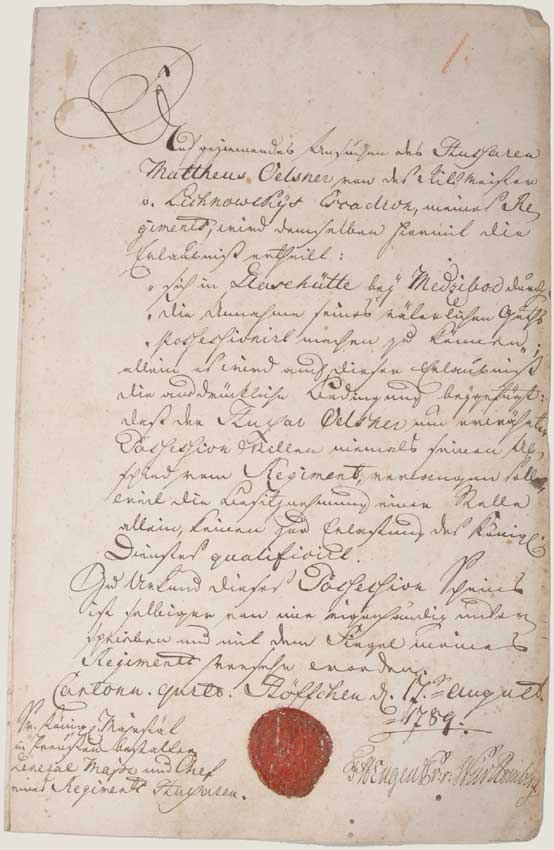 Auf geziemendes Ansuchen des Husaren
Mattheus Oelsner, von des Rittmeister
v. Lichnowskys Escadron, meines Re-
giments, wird demselben hiermit die
Erlaubniß ertheilt:
"sich in Glaschütte bey Medzibod durch
"die Annahme seines väterlichen Guths
"Possessionirt machen zu können";
allein es wird auch dieser Erlaubniß
die ausdrückliche Bedingung beygefügt:
daß der Husar Oelsner um erwähnter
Possession Willen niemals seinen Ab-
schied vom Regiment, verlangen solle
weil die Besitznehmung einer Stelle
allein, keinen zur Entlassung des Königl.
Dienstes qualificirt.
Zu Urkund dieses Possession Scheins
ist selbiger von mir eigenhändig unter-
schrieben und mit dem Siegel meines
Regiments versehn worden.
Cantonn. quart. Höffchen d. 17ten august.
1789.
Sr. Königl. Majestät
in Preussen bestallter
General Major und Chef
eines Regiments Husaren.
Eugen Pr. v. Würtemberg